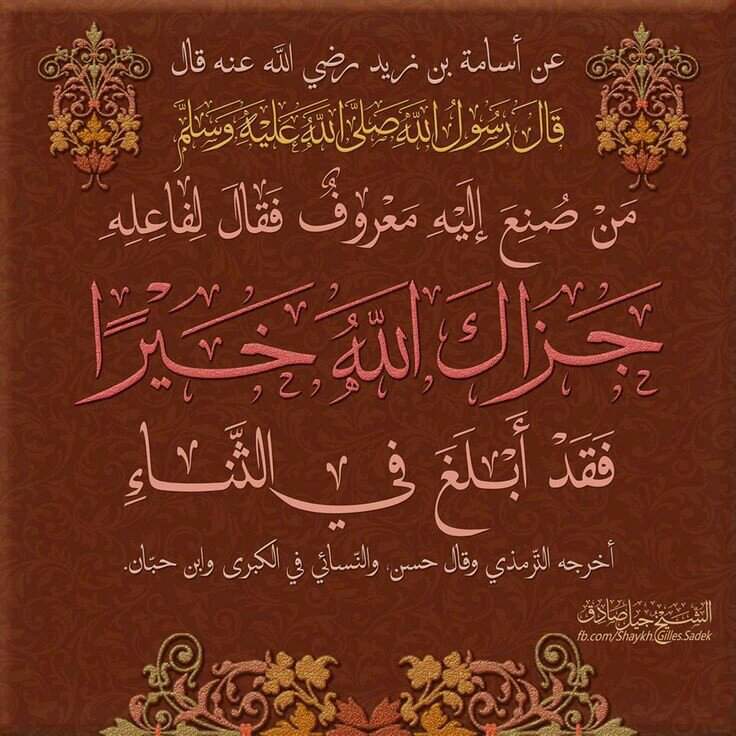 عن أسامة بن زيد رضي الله عنه قال
قَالَ رَسُولُ اللَّهِ صَلَّى اللَّهُ عَلَيْهِ وَسَلَّمَ
مَنْ صُنِعَ إِلَيْهِ مَعْرُوفٌ فَقَالَ لِفَاعِلِهِ
جَزَاكَ اللَّهُ خَيْرًا
فَقَدْ أَبْلَغَ فِي الثَّنَاءِ
أخرجه التّرمذي وقال حسن، والنّسائي في الكبرى وابن حبّان.
الشيخ جيل صادق
fb.com/Shaykh.Gilles.Sadek